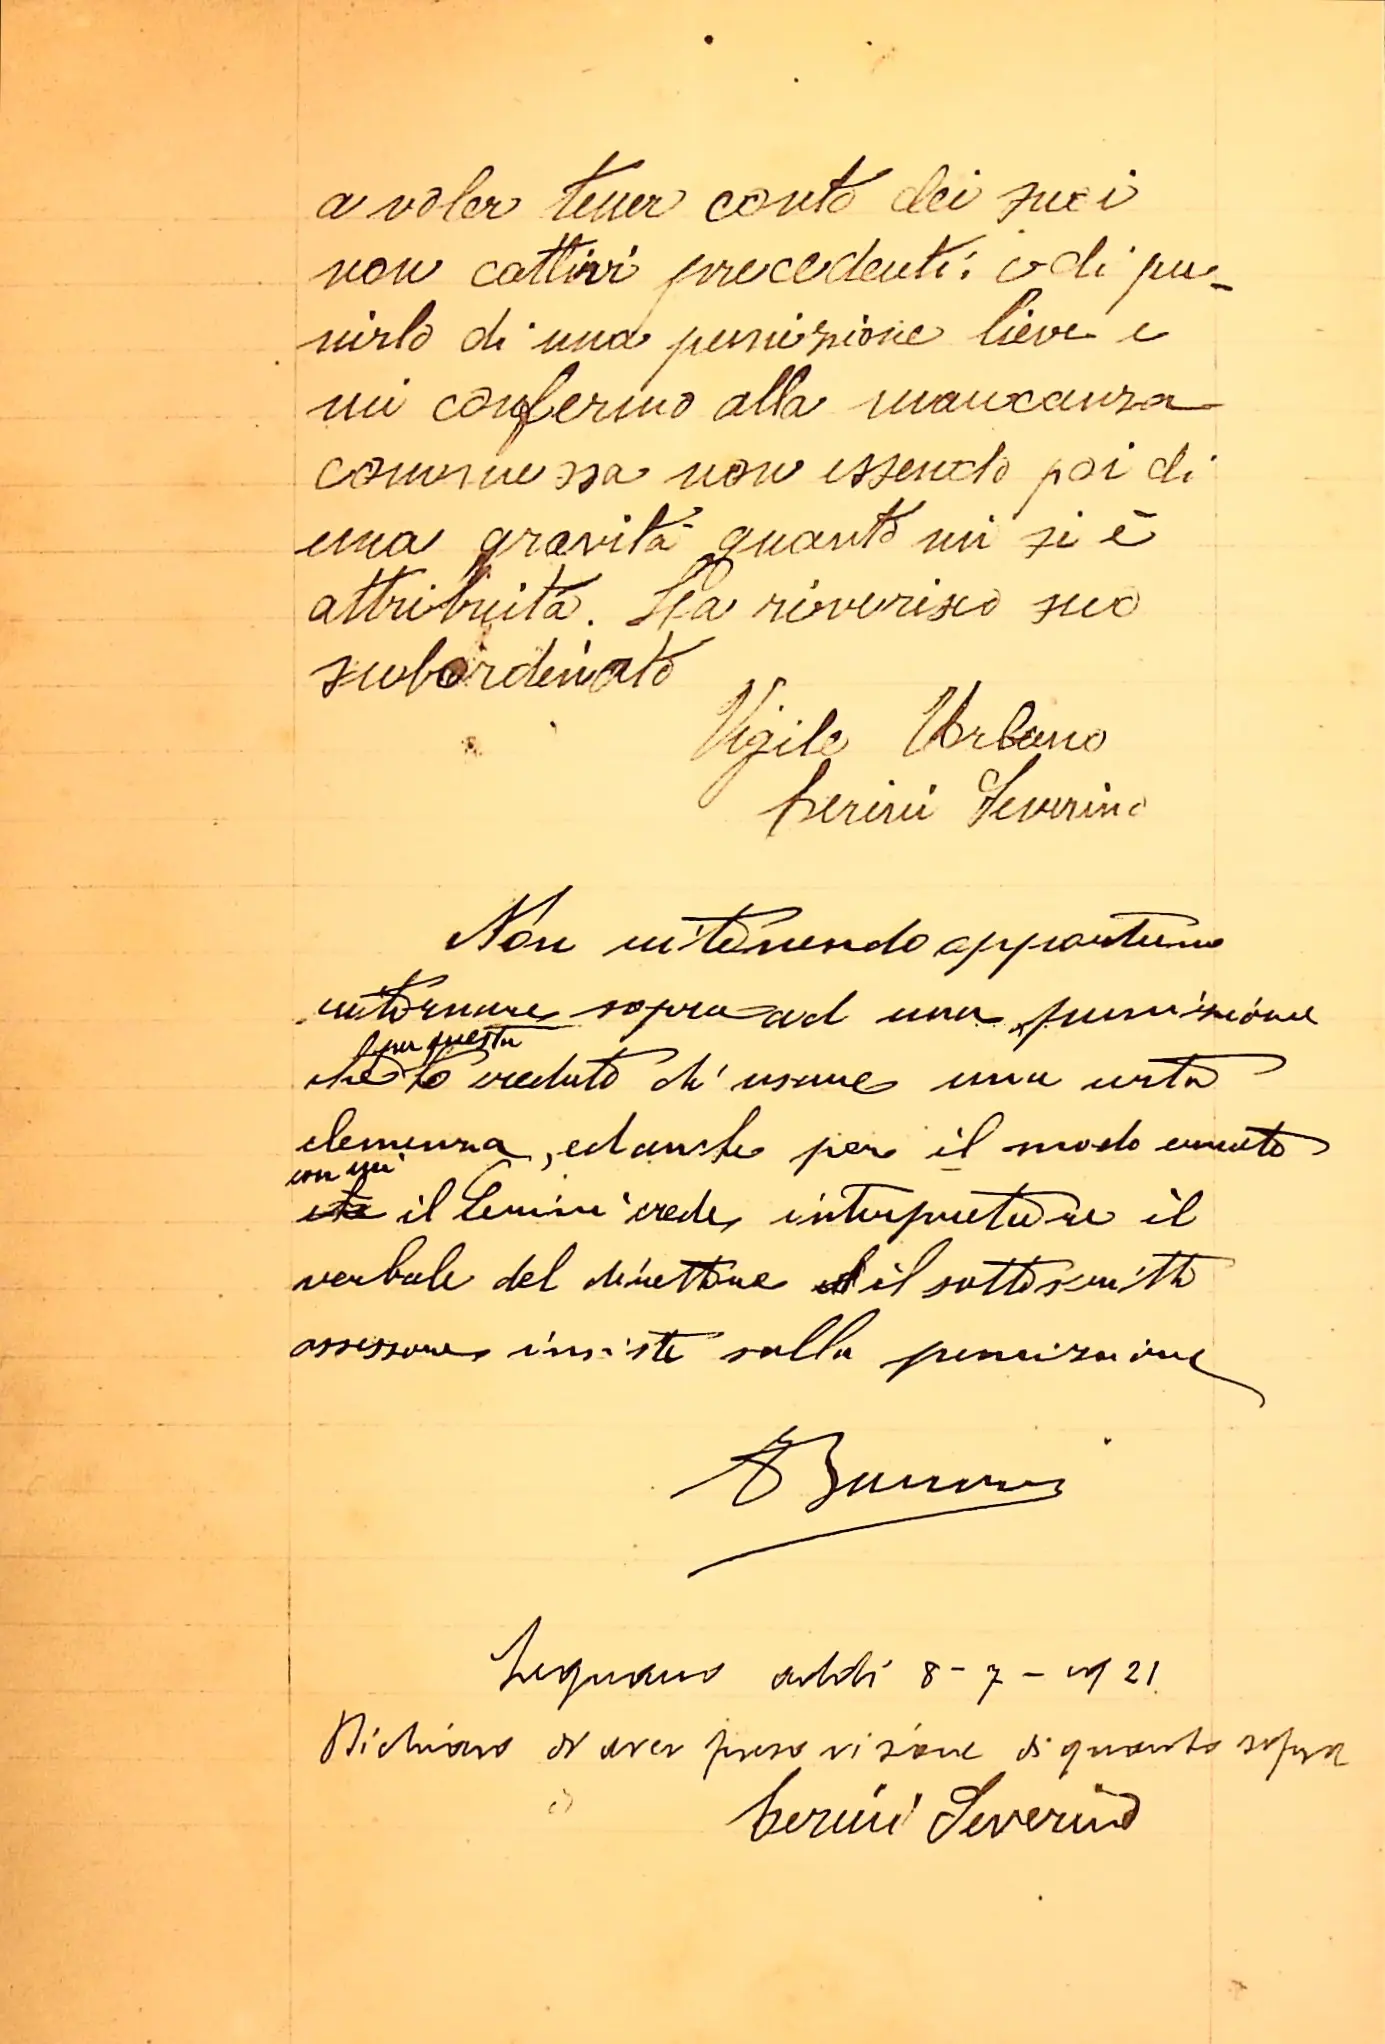 a voler tener conto dei suoi
non cattivi precedenti: e di pu-
nirlo di una punizione lieve e
mi confermo alla mancanza
commessa non essendo poi di
una gravità quanto mi si è
attribuita. La riverisco suo
subordinato
Vigile Urbano
Cerini Severino
Non ritenendo opportuno
ritornare sopra ad una punizione
per questa
che ho creduto di usare una certa
clemenza, ed anche per il modo errato
con cui
il Cerini crede interpretare il
verbale del direttore il sottoscritto
assessore insiste sulla punizione
Legnano addì 8-7-1921
Dichiaro di aver preso visione di quanto sopra
Cerini Severino